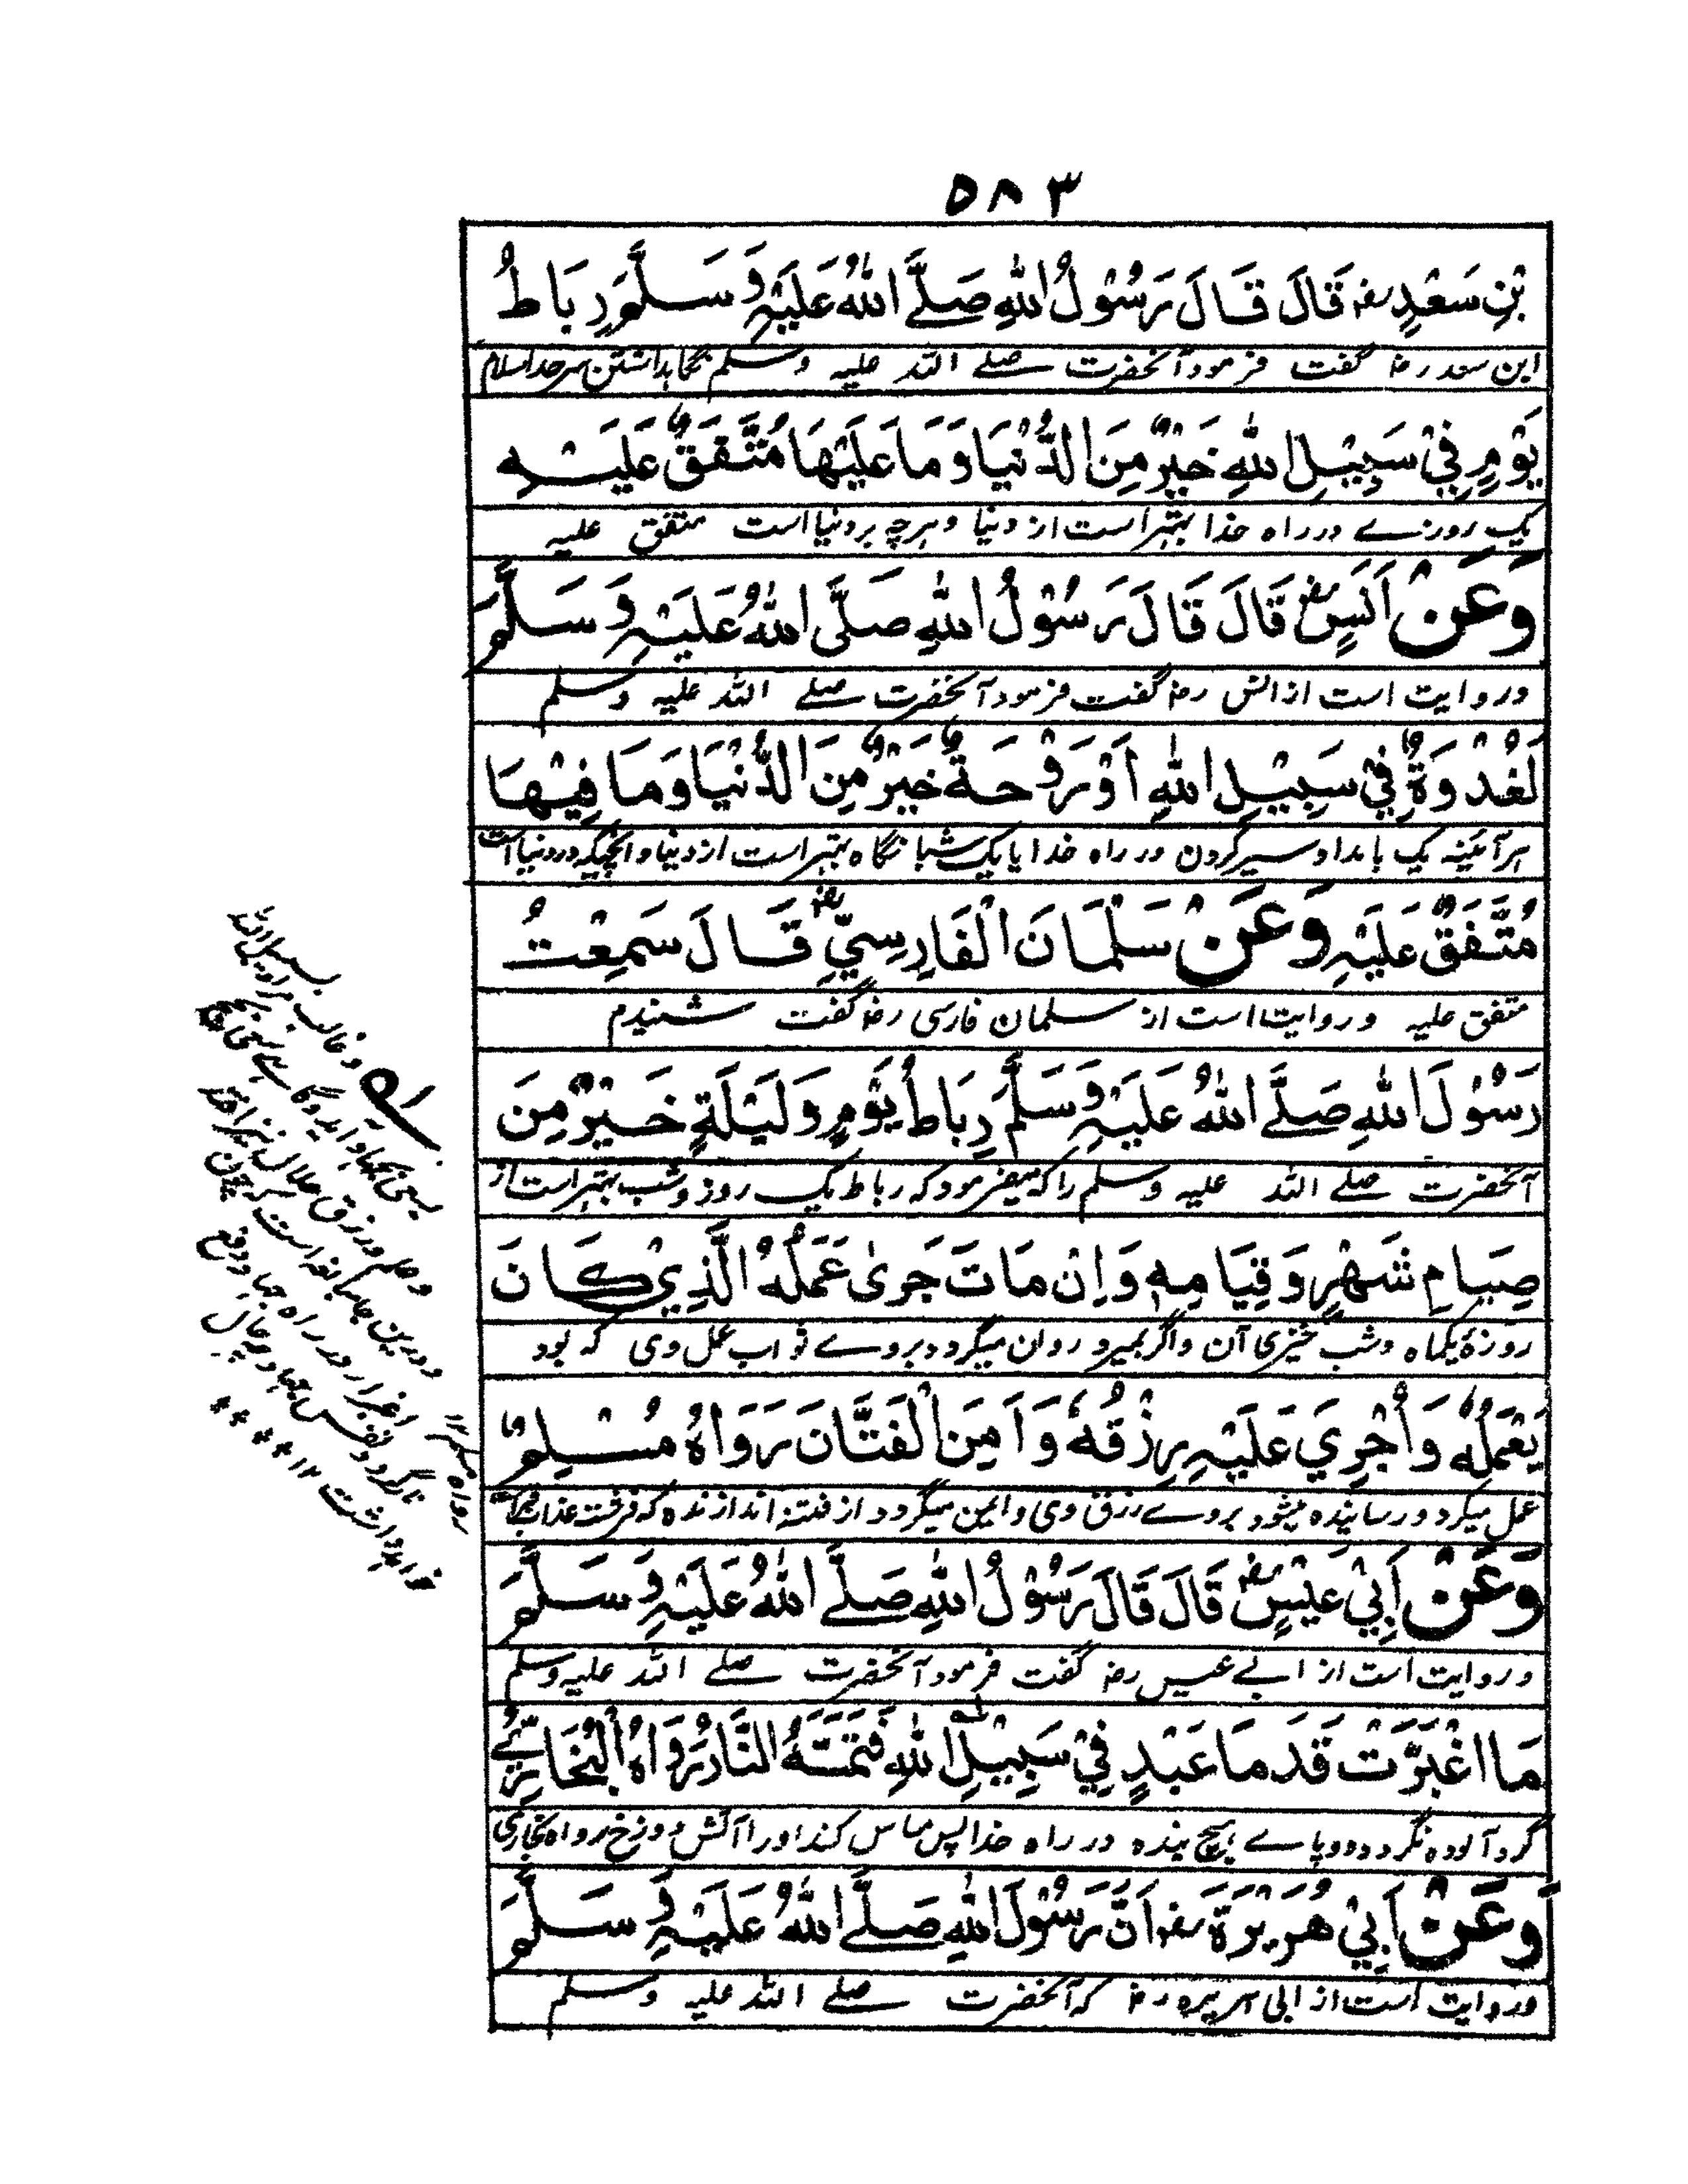 ۵۸۳
بْنِ سَعْدٍ رض قَالَ قَالَ رَسُوْلُ اللهِ صَلَّے اللهُ عَلَيْهِ وَسَلَّمَ رِبَاطُ
ابن سعد رض گفت فرمود آنحضرت صلے اللہ علیہ وسلم نگاہداشتن سرحد اسلام
يَوْمٍ فِيْ سَبِيْلِ اللهِ خَيْرٌ مِنَ الدُّنْيَا وَمَا عَلَيْهَا مُتَّفَقٌ عَلَيْهِ
یک روزے در راہ خدا بہتر است از دنیا و ہرچہ بر دنیا است متفق علیہ
وَعَنْ اَنَسٍ رض قَالَ قَالَ رَسُوْلُ اللهِ صَلَّى اللهُ عَلَيْهِ وَسَلَّمَ
و روایت است از انس رض گفت فرمود آنحضرت صلے اللہ علیہ وسلم
لَغَدْوَةٌ فِيْ سَبِيْلِ اللهِ أَوْ رَوْحَةٌ خَيْرٌ مِنَ الدُّنْيَا وَمَا فِيْهَا
ہرآئینہ یک بامداد سیر کردن در راہ خدا یا یک شبانگاہ بہتر است از دنیا و آنچیکہ در دنیا است
مُتَّفَقٌ عَلَيْهِ وَعَنْ سَلْمَانَ الْفَارِسِيِّ رض قَالَ سَمِعْتُ
متفق علیہ و روایت است از سلمان فارسی رض گفت شنیدم
رَسُوْلَ اللهِ صَلَّے اللهُ عَلَيْهِ وَسَلَّمَ رِبَاطُ يَوْمٍ وَلَيْلَةٍ خَيْرٌ مِنْ
آنحضرت صلے اللہ علیہ وسلم را کہ میفرمود کہ رباط یک روز و شب بہتر است از
صِيَامِ شَهْرٍ وَقِيَامِهٖ وَاِنْ مَاتَ جَرىٰ عَمَلُهُ الَّذِيْ كَانَ
روزۂ یکماہ و شب خیزی آن و اگر بمیرد روان میگردد بروے ثواب عمل وی کہ بود
يَعْمَلُهُ وَأُجْرِيَ عَلَيْهِ رِزْقُهُ وَاَمِنَ الْفَتَّانَ رَوَاهُ مُسْلِمٌ
عمل میکرد و رسانیدہ میشود بروے رزق وی و ایمن میگردد از فتنہ اندازندہ کہ فرشتہ عذاب قبر است
رواہ مسلم
وَعَنْ اَبِيْ عَبْسٍ رض قَالَ قَالَ رَسُوْلُ اللهِ صَلَّے اللهُ عَلَيْهِ وَسَلَّمَ
و روایت است از ابے عبس رض گفت فرمود آنحضرت صلے اللہ علیہ وسلم
مَا اغْبَرَّتْ قَدَمَا عَبْدٍ فِيْ سَبِيْلِ اللهِ فَتَمَسَّهُ النَّارُ رَوَاهُ الْبُخَارِيُّ
گرد آلودہ نگردد دو پاے ہیچ بندہ در راہ خدا پس مساس کند او را آتش دوزخ رواہ بخاری
وَعَنْ اَبِيْ هُرَيْرَةَ رض اَنَّ رَسُوْلَ اللهِ صَلَّے اللهُ عَلَيْهِ وَسَلَّمَ
و روایت است از ابی ہریرہ رض کہ آنحضرت صلے اللہ علیہ وسلم